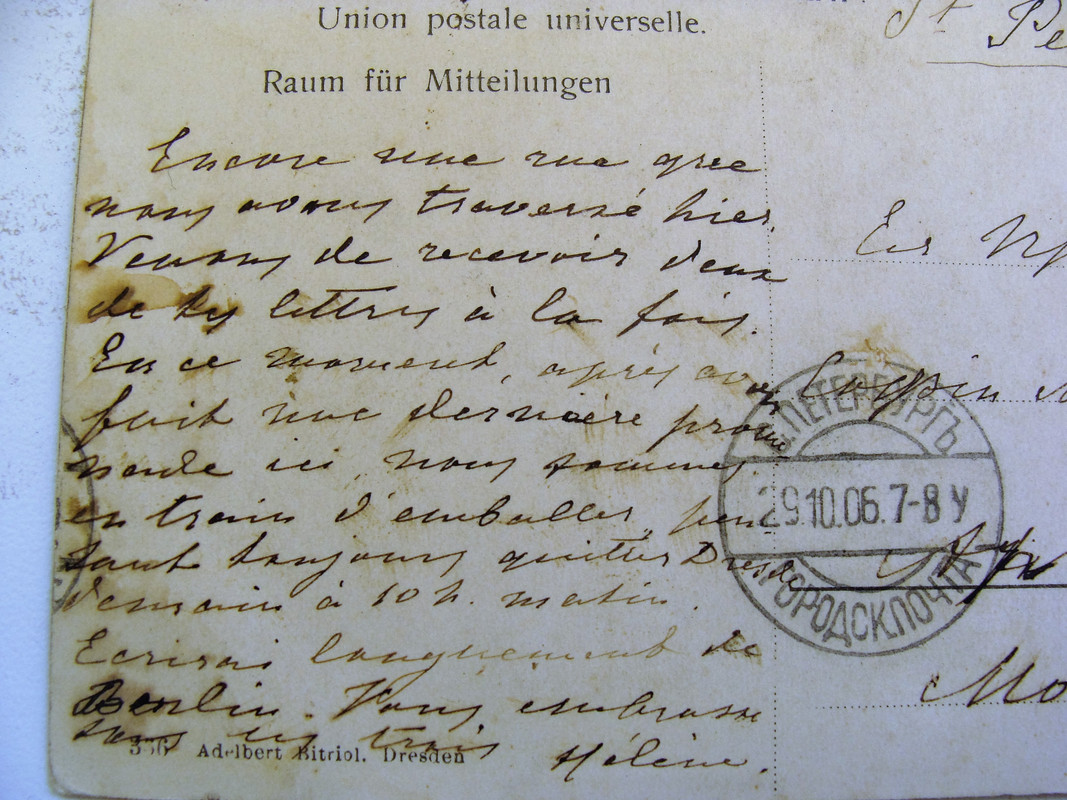 Union postale universelle.
Raum für Mitteilungen
St Pe
Encore une rue que
nous avons traversé hier.
Venons de recevoir deux
de tes lettres à la fois.
En ce moment, après avoir
fait une dernière prome
nade ici, nous sommes
en train d'emballer, pen
sant toujours quitter Dresde
demain à 10 h. matin.
Ecrirai longuement de
Berlin. Vous embrasse
tous les trois
Hélène.
336 Adelbert Bitriol. Dresden
С.ПЕТЕРБУРГЪ
29.10.06.7-8 У
ГОРОДСК.ПОЧТА
Mo